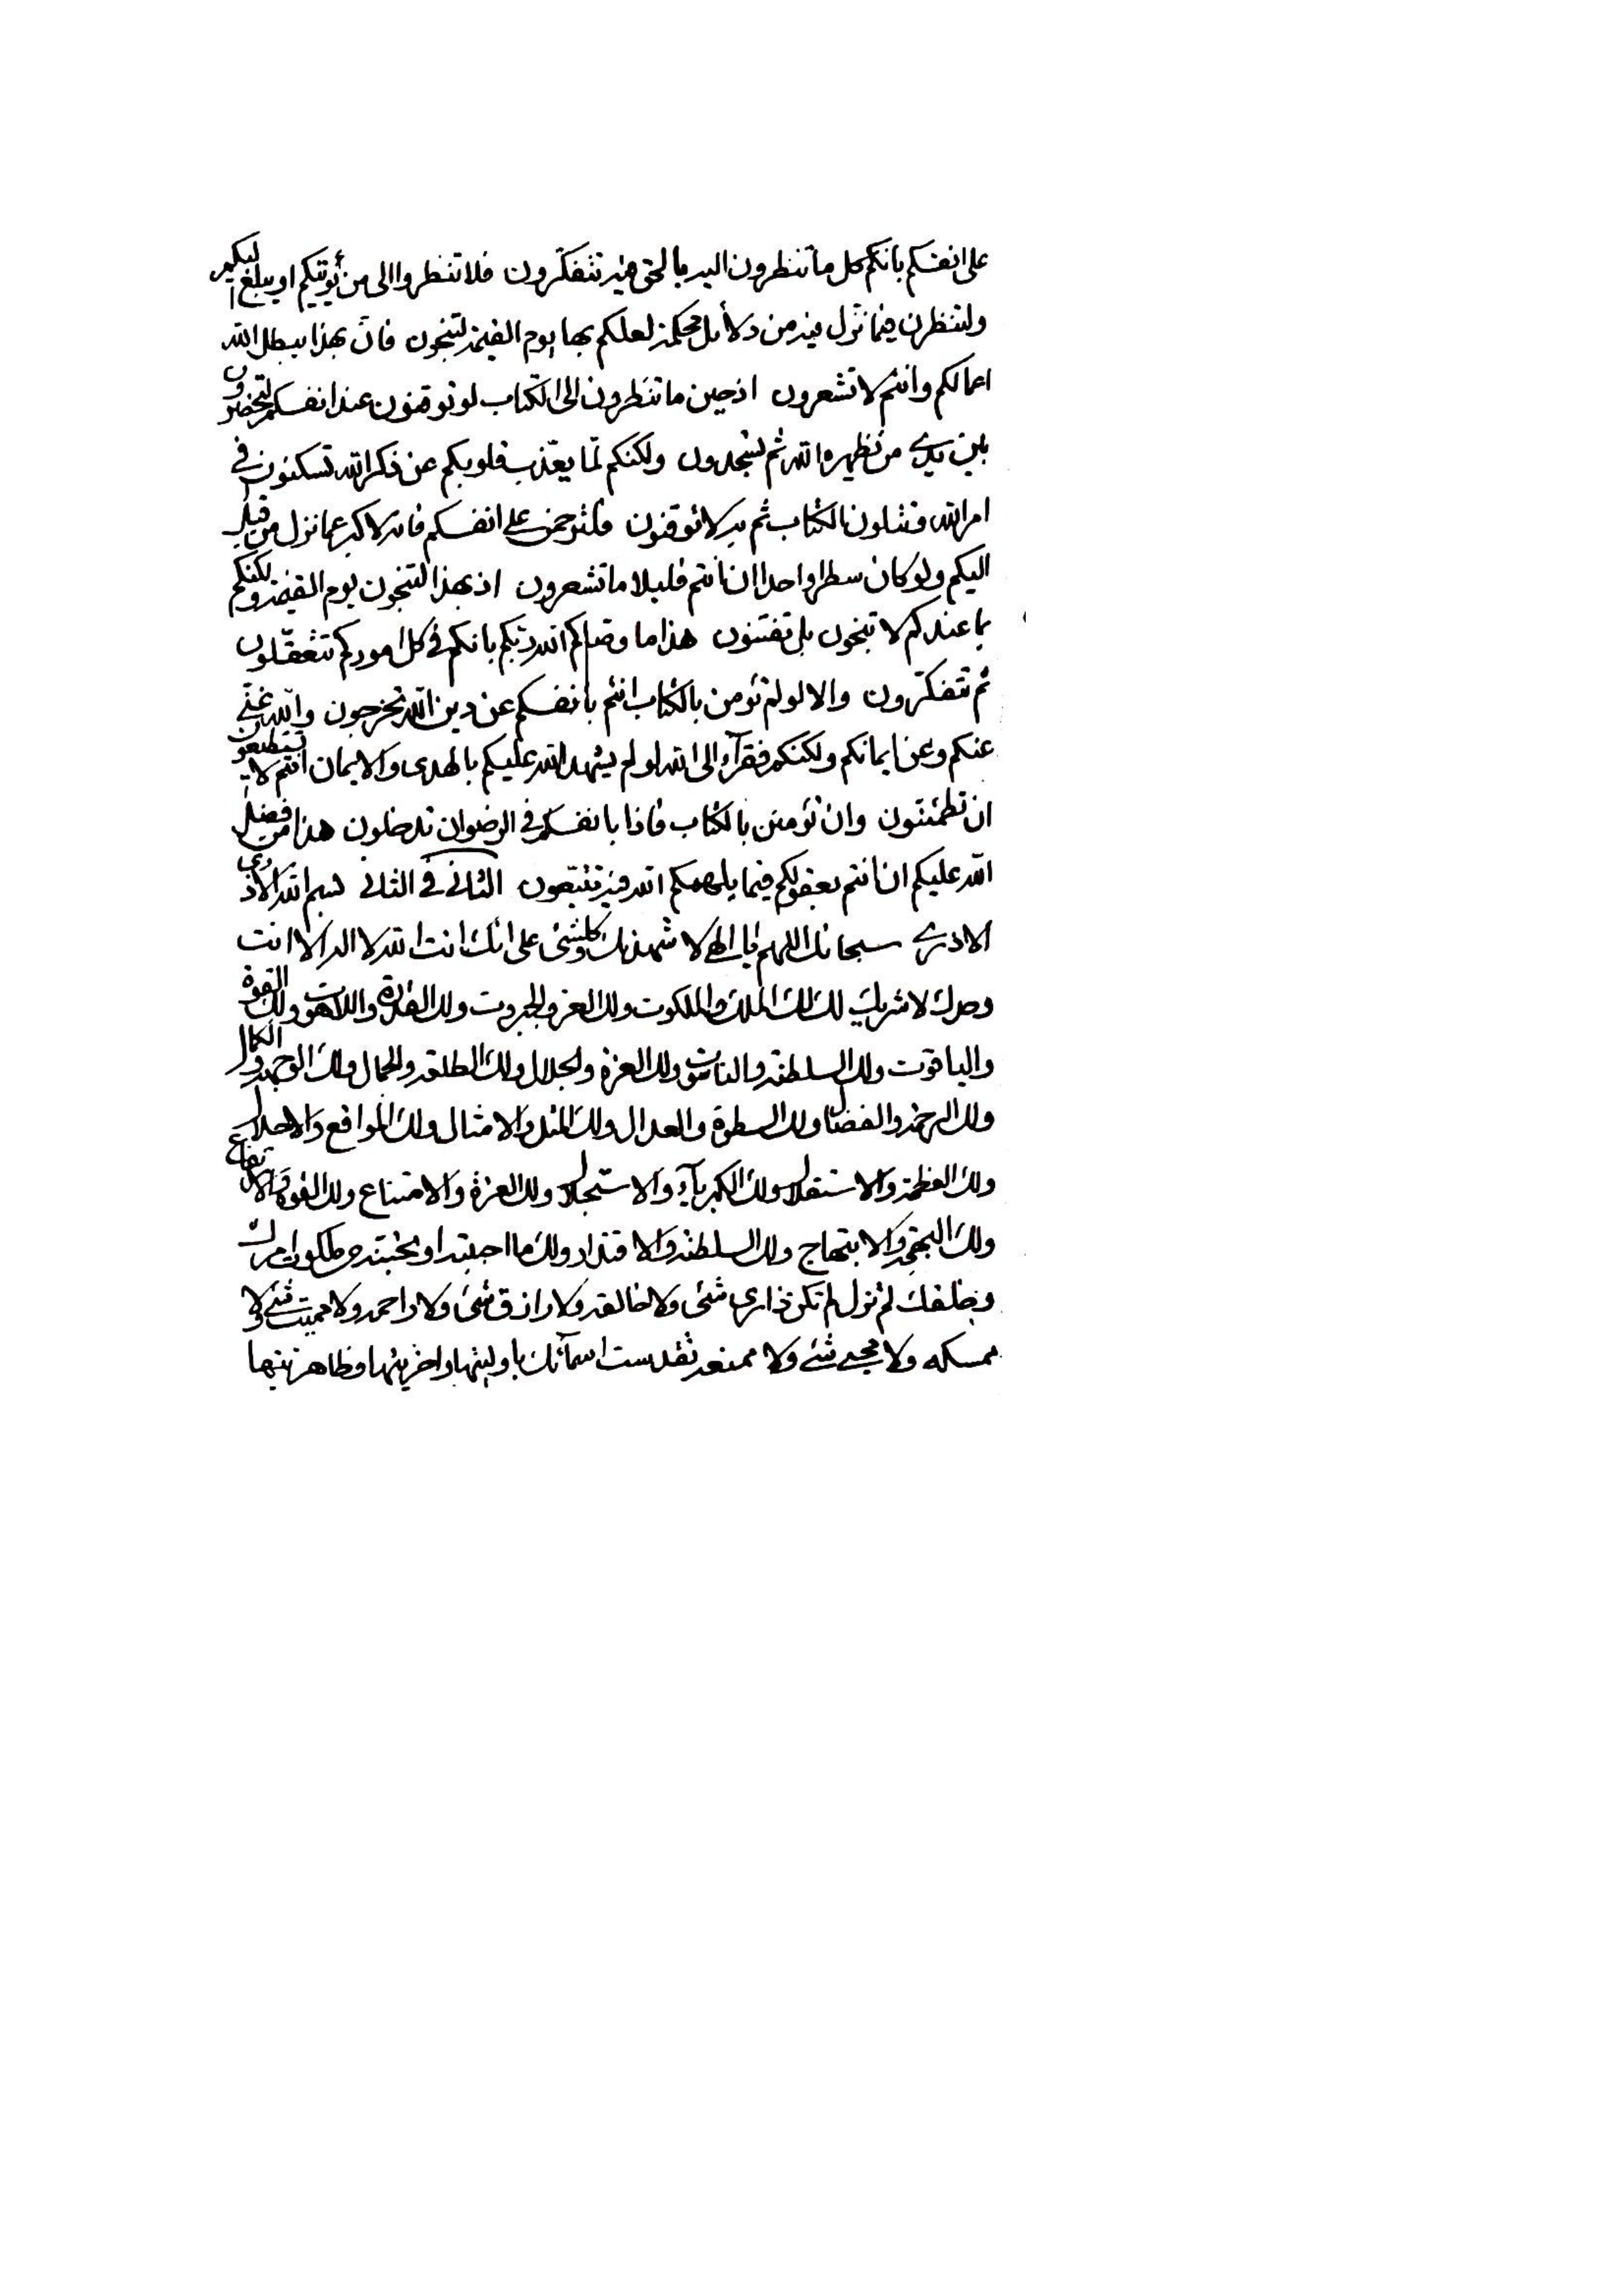 على انفسكم بانكم كل ما تنظرون اليه بالحق فيه تتفكرون فلا تنظروا الى من يؤتيكم او يبلغ اليكم
ولتنظرن فيما نزل فيه من دلائل محكمة لعلكم بها يوم القيمة لتنجون فان بهذا يبطل الله
اعمالكم وانتم لا تشعرون اذ حين ما تنظرون الى الكتاب لو توقنون عند انفسكم لتحضرون
بين يدي من يظهره الله ثم لتسجدون ولكنكم لما يعذب قلوبكم عن ذكر الله تسكنون في
امر الله فتتلون الكتاب ثم به لا توقنون فلترحمن على انفسكم فانه لاكبر عما نزل من قبل
اليكم ولو كان سطرا واحدا ان انتم قليلا ما تشعرون اذ بهذا لتنجون يوم القيمة ولكنكم
بما عندكم لا تنجون بل تفتنون هذا ما وصاكم الله ربكم بانكم في كل اموركم تتعقلون
ثم تتفكرون والا لو لم تؤمن بالكتاب انتم بانفسكم عن دين الله تخرجون والله غني
عنكم وعن ايمانكم ولكنكم فقرآء الى الله لو لم يشهد الله عليكم بالهدى والايمان انتم لا تستطيعون
ان تطمئنون وان تؤمنن بالكتاب فاذا بانفسكم في الرضوان تدخلون هذا من فضل
الله عليكم ان انتم بعقولكم فيما يلهمكم الله فيه تتبعون الثاني في الثاني بسم الله الاذري
الاذري سبحانك اللهم يا الهي لاشهدنك وكلشئ على انك انت الله لا اله الا انت
وحدك لا شريك لك لك الملك والملكوت ولك العز والجبروت ولك القدرة واللاهوت ولك القوة
والياقوت ولك السلطنة والناسوت ولك العزة والجلال ولك الطلعة والجمال ولك الوجهة والكمال
ولك الرحمة والفضال ولك السطوة والعدال ولك المثل والامثال ولك المواقع والاجلال
ولك العظمة والاستقلال ولك الكبريآء والاستجلال ولك العزة والامتناع ولك القوة والارتفاع
ولك البهجة والابتهاج ولك السلطنة والاقتدار ولك ما احببته او تحببه من ملكوت امرك
وخلقك لم تزل لم تكن ذارئ شئ ولا خالقه ولا رازق شئ ولا راحمه ولا مميت شئ ولا
ممسكه ولا محيي شئ ولا ممنعه تقدست اسمآئك باوليتها واخريتها وظاهريتها